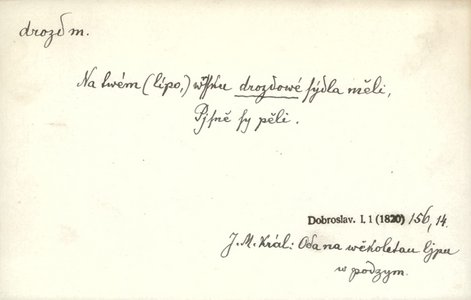 drozd m.
Na twém (lípo,) wršku drozdowé sýdla měli,
Pjsně sy pěli.
Dobroslav. I. 1 (1820) 156, 14.
J. M. Král: Oda na wěkoletau ljpu
w podzym.